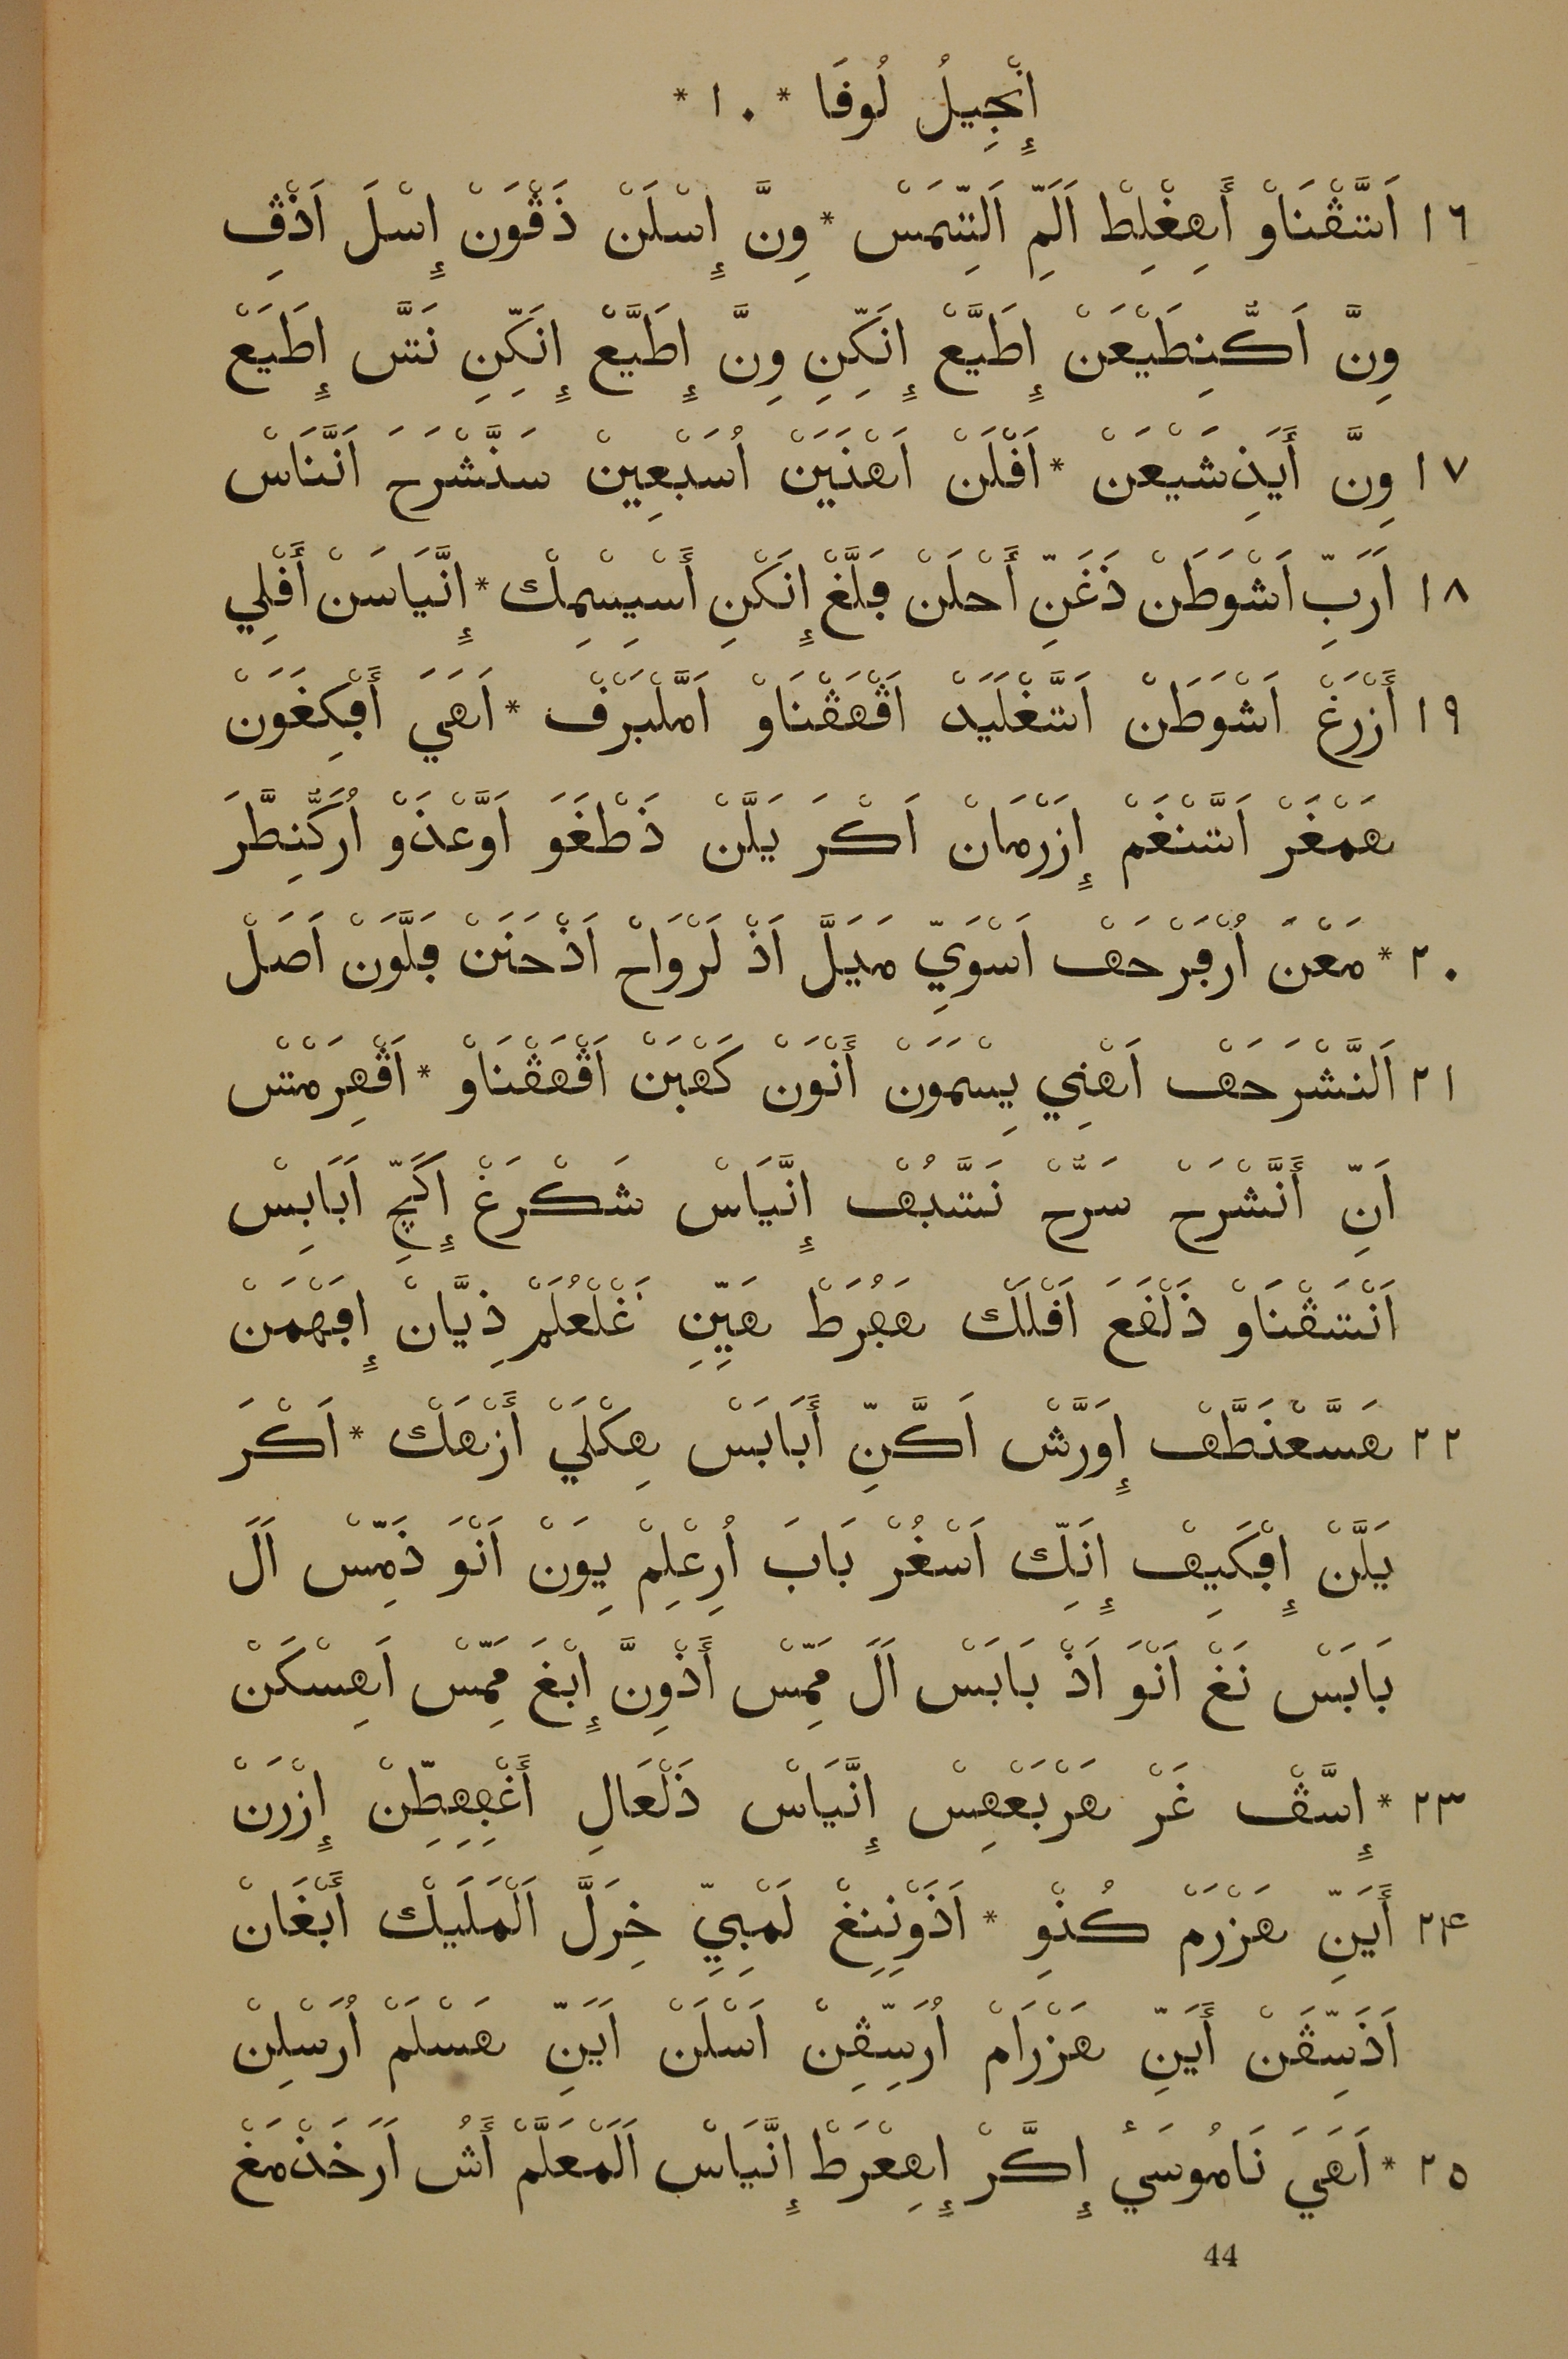 إِنْجِيلُ لُوقَا * ١٠ *
١٦ اَتَّڤْنَاوْ أَهِغْلِطْ اَلَمِّ اَلتِّمَسْ * وِنَّ إِسْلَنْ ذَڤْوَنْ إِسْلَ اَذْڤِ
وِنَّ اَكُّنِطَيْعَنْ إِطَيَّعْ إِنَكِّنِ وِنَّ إِطَيَّعْ إِنَكِّنِ نَتَّ إِطَيَعْ
١٧ وِنَّ أَيَذِشَيْعَنْ * اَفْلَنْ اَهْنَيَنْ اُسَبْعِينْ سَنَّشْرَحَ اَنَّنَاسْ
١٨ اَرَبِّ اَشْوَطَنْ ذَغَنِّ أَحْلَنْ فَلَّغْ إِنَكْنِ أَسْيِسْمِكْ * إِنَّيَاسَنْ أَفْلِي
١٩ أَزْرَغْ اَشْوَطَنْ اَتَّغْلَيَدْ اَڤْهَڤْنَاوْ اَمَّلْبَرْقْ * اَهَيَ أَفْكِغَوَنْ
هَمْغَرْ اَتَّنْغَمْ إِزَرْمَانْ اَكْرَ يَلَّنْ ذَطْغَوَ اَوَّعْذَوْ اُرَكُّنِطَّرَ
٢٠ * مَعْنَ اُرْفَرْحَهْ اَسْوَيِّ مَيَلَّ اَذْ لَرْوَاحْ اَذْحَنَنْ فَلَّوَنْ اَصَلْ
٢١ اَلنَّشْرَحَهْ اَهْنِي يِسْمَوَنْ أَنْوَنْ كَهْبَنْ اَڤْهَڤْنَاوْ * اَڤْهِرَمْتْسْ
اَنِّ أَنَّشْرَحْ سَرُّحْ نَتَّبُهْ إِنَّيَاسْ شَكْرَغْ إَكَچِّ اَبَابِسْ
اَنْتَڤْنَاوْ ذَلْقَعَ اَفْلَكْ هَفُرَطْ هَيِّنِ غْلْعُلَمْ ذِيَّانْ إِفَهْمَنْ
٢٢ هَسَّعْنَطَّهْ إِوَرَّشْ اَكَّنِّ أَبَابَسْ هِكْلَيْ أَزْهَكْ * اَكْرَ
يَلَّنْ إِفْكَيِهْ إِنَكِّ اَسْغُرْ بَابَ اُرِعْلِمْ يِوَنْ اَنْوَ ذَمِّسْ اَلَ
بَابَسْ نَغْ اَنْوَ اَذْ بَابَسْ اَلَ مَمِّسْ أَذْوِنَّ إِبْغَ مَمِّسْ اَهِسْكَنْ
٢٣ * إِسَّڤْ غَرْ هَرْبَعْهِسْ إِنَّيَاسْ ذَلْعَالِ أَغْفِهِطِّنْ إِزْرَنْ
٢٤ أَيَنِّ هَزْرَمْ كُنْوِ * اَذَوْنِنِغْ لَمْبِيِّ خِرَلَّ اَلْمَلَيَكْ أَبْغَانْ
اَذَسِّڤَنْ أَيَنِّ هَزْرَامْ اُرَسِّڤِنْ اَسْلَنْ اَيَنِّ هَسْلَمْ اُرَسْلِنْ
٢٥ * اَهَيَ نَامُوسَيْ إِكَّرْ إِهِعْرَطْ إِنَّيَاسْ اَلَمْعَلَّمْ أَشُ اَرَخَذْمَغْ
44